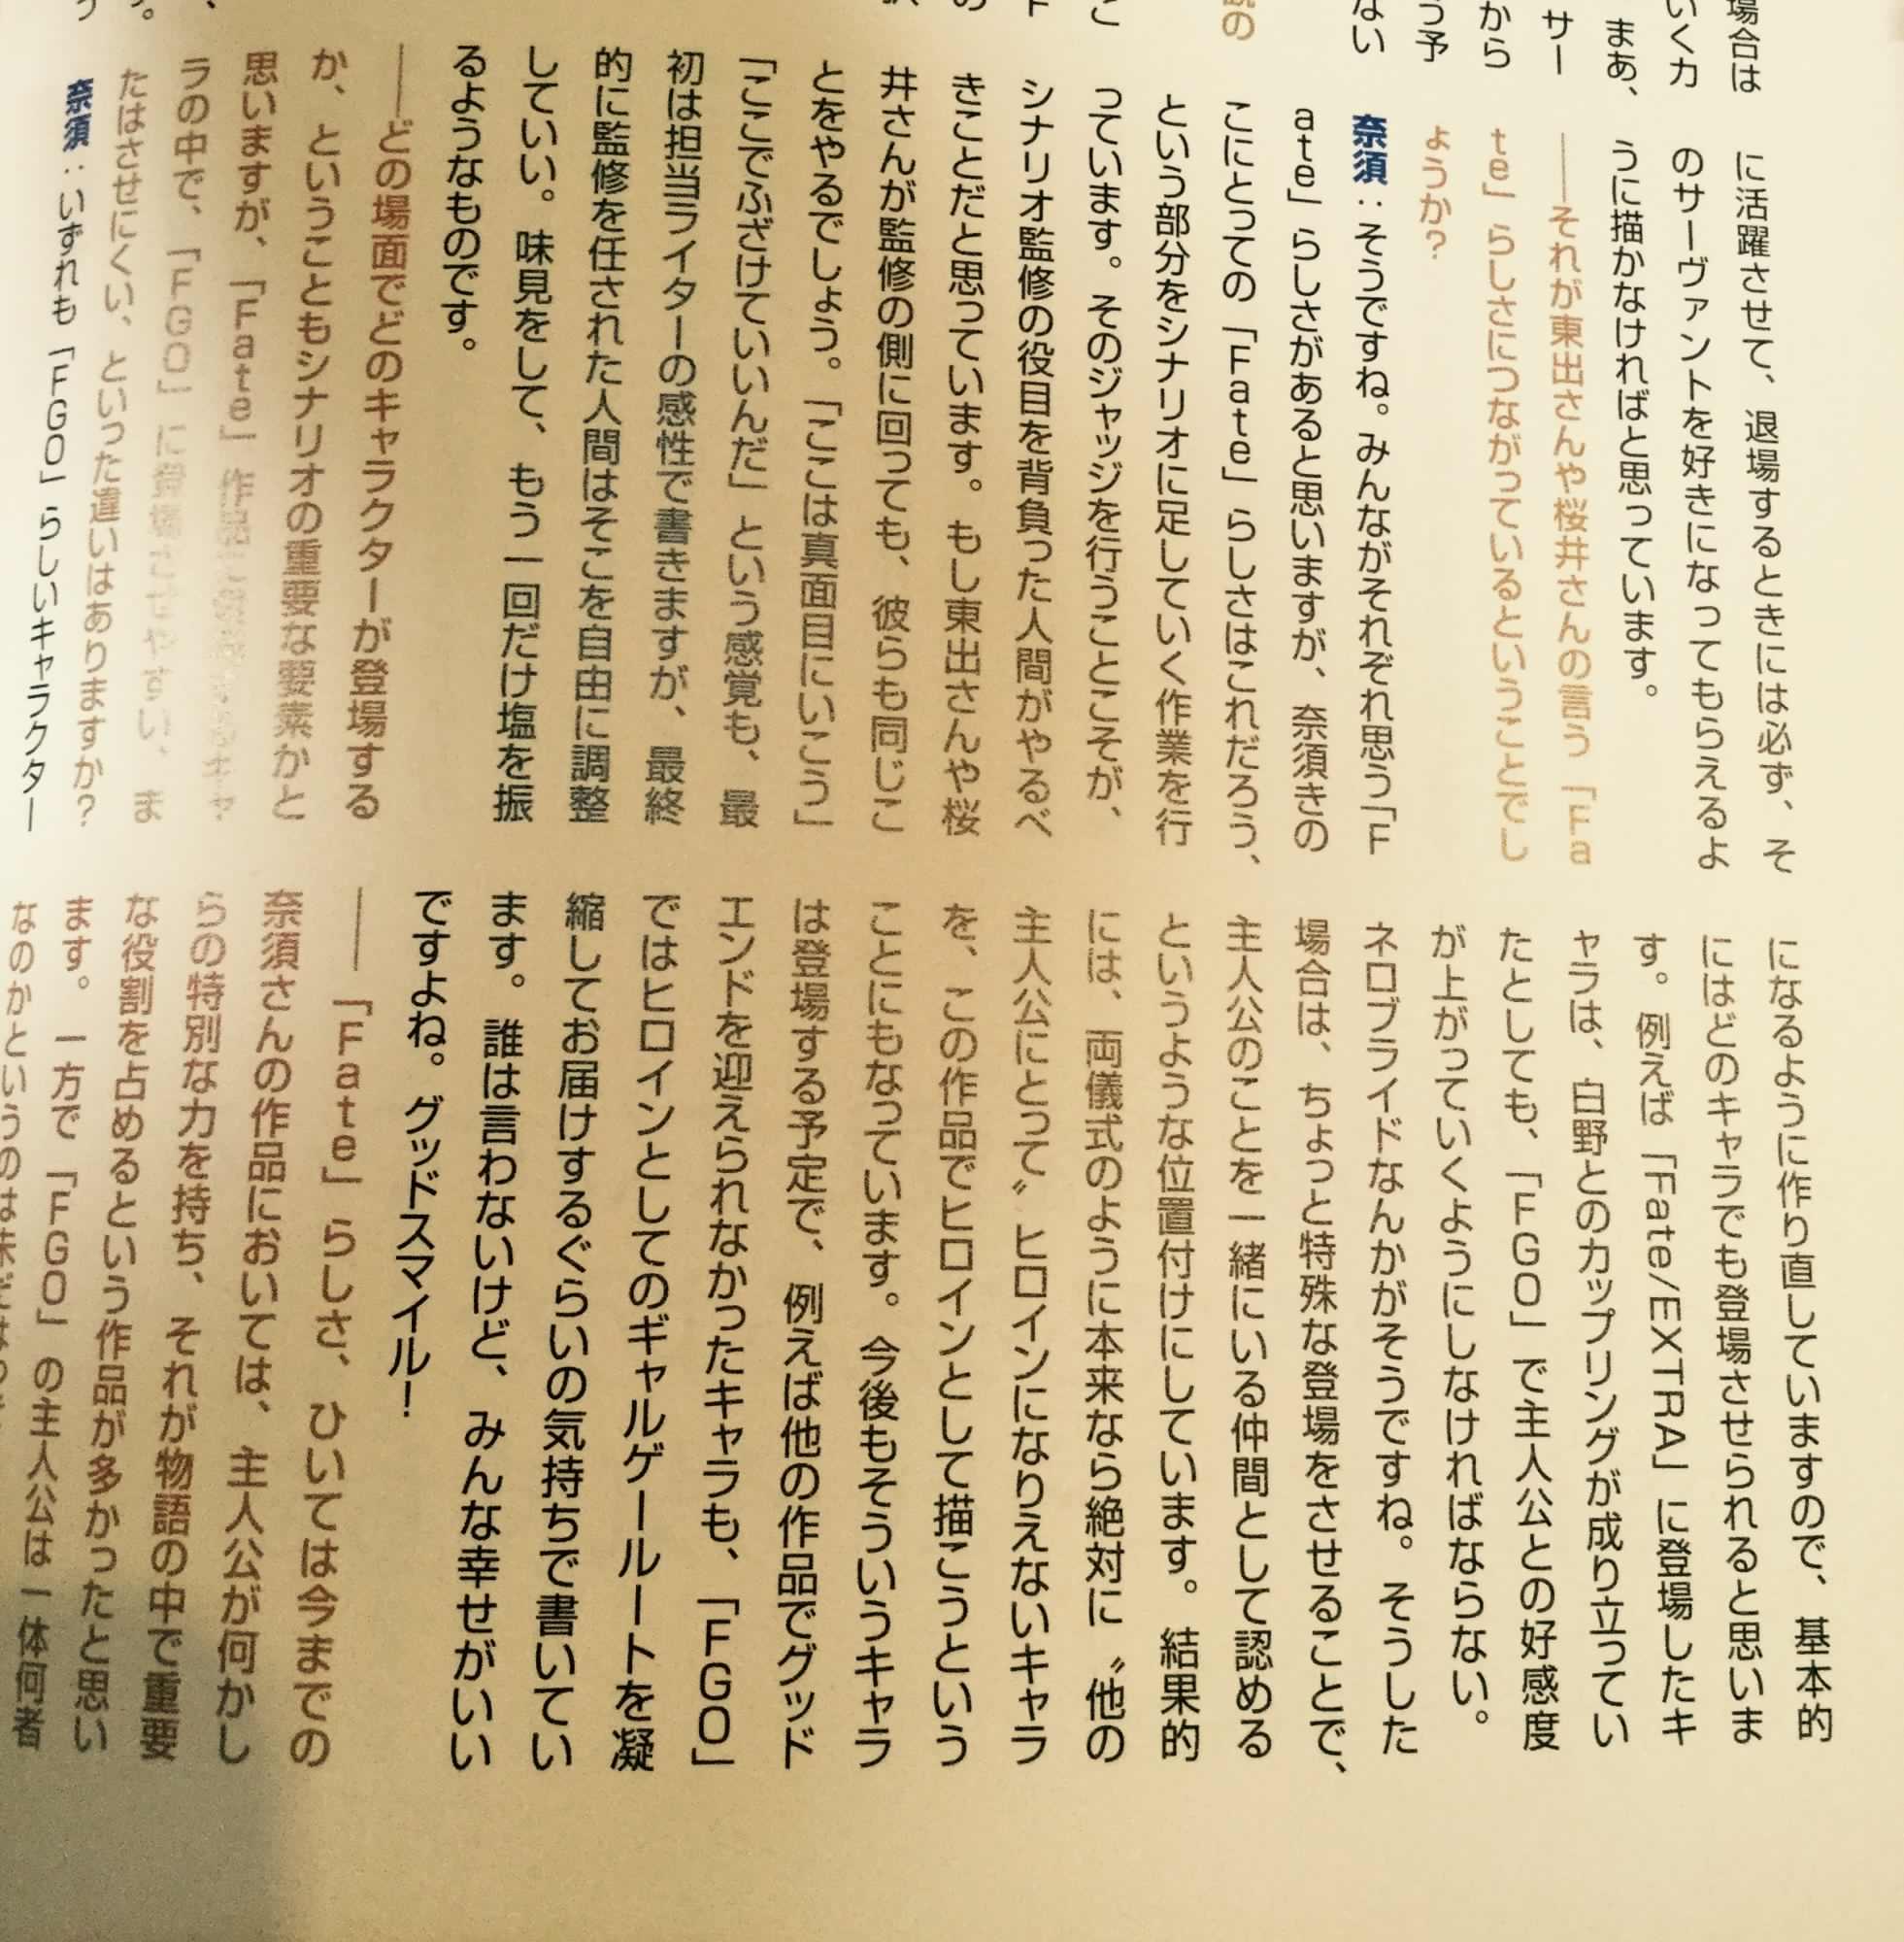 場合は
いくカ
まあ、
サー
から
う予
ない
に活躍させて、退場するときには必ず、そ
のサーヴァントを好きになってもらえるよ
うに描かなければと思っています。
――それが東出さんや桜井さんの言う「Fa
te」らしさにつながっているということでし
ょうか?
奈須：そうですね。みんながそれぞれ思う「F
ate」らしさがあると思いますが、奈須きの
こにとっての「Fate」らしさはこれだろう、
という部分をシナリオに足していく作業を行
っています。そのジャッジを行うことこそが、
シナリオ監修の役目を背負った人間がやるべ
きことだと思っています。もし東出さんや桜
井さんが監修の側に回っても、彼らも同じこ
とをやるでしょう。「ここは真面目にいこう」
「ここでふざけていいんだ」という感覚も、最
初は担当ライターの感性で書きますが、最終
的に監修を任された人間はそこを自由に調整
していい。味見をして、もう一回だけ塩を振
るようなものです。
――どの場面でどのキャラクターが登場する
か、ということもシナリオの重要な要素かと
思いますが、「Fate」作品に
ラの中で、「FGO」に登場させやすい、ま
たはさせにくい、といった違いはありますか?
奈須：いずれも「FGO」らしいキャラクター
になるように作り直していますので、基本的
にはどのキャラでも登場させられると思いま
す。例えば「Fate/EXTRA」に登場したキ
ャラは、白野とのカップリングが成り立ってい
たとしても、「FGO」で主人公との好感度
が上がっていくようにしなければならない。
ネロブライドなんかがそうですね。そうした
場合は、ちょっと特殊な登場をさせることで、
主人公のことを一緒にいる仲間として認める
というような位置付けにしています。結果的
には、両儀式のように本来なら絶対に〝他の
主人公にとって〟ヒロインになりえないキャラ
を、この作品でヒロインとして描こうという
ことにもなっています。今後もそういうキャラ
は登場する予定で、例えば他の作品でグッド
エンドを迎えられなかったキャラも、「FGO」
ではヒロインとしてのギャルゲールートを凝
縮してお届けするぐらいの気持ちで書いてい
ます。誰は言わないけど、みんな幸せがいい
ですよね。グッドスマイル!
――「Fate」らしさ、ひいては今までの
奈須さんの作品においては、主人公が何かし
らの特別な力を持ち、それが物語の中で重要
な役割を占めるという作品が多かったと思い
ます。一方で「FGO」の主人公は一体何者
なのかというのは